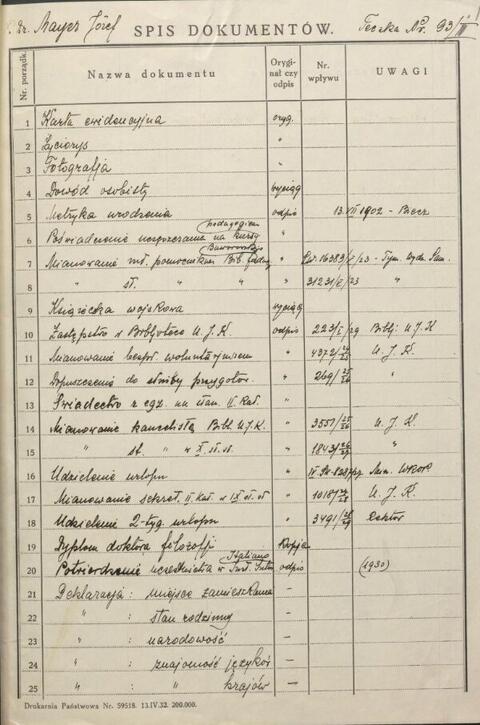 Dr. Mayer Józef SPIS DOKUMENTÓW. Teczka Nr. 93/III
Nr. porządk. Nazwa dokumentu Orygi-nał czy odpis Nr. wpływu UWAGI
1 Karta ewidencyjna oryg.
2 Życiorys "
3 Fotografja "
4 Dowód osobisty wyciąg
5 Metryka urodzenia odpis 13.XII 1902 - Biecz
6 Poświadczenie uczęszczania na kursy pedagogiczn "
7 Mianowanie mł. pomocnikiem Bibl. "
8 " st. " " 31231/ /23 "
9 Książeczka wojskowa wyciąg
10 Zastępstwo w Bibljotece U. J. K. odpis 223/ 29 Bibl: U. J. K
11 Mianowanie bezpł. woluntarjuszem " 4372/ U. J. K.
12 Dopuszczenie do służby przygotow. " 269/ "
13 Świadectwo z egz. na stan. II. Kat. "
14 Mianowanie kancelistą Bibl. U.J.K. " 3551/ U. J. K.
15 " st. " w X. st. sł. " 1843/ "
16 Udzielenie urlopu "
17 Mianowanie sekret. II. Kat. w IX st. sł. " 1018/ U. J. K.
18 Udzielenie 2-tyg. urlopu " 3491/ Rektor
19 Dyplom doktora filozofji Kopja
20 Potwierdzenie uczestnictwa w Italiano odpis (1930)
21 Deklaracja: miejsce zamieszkania -
22 " : stan rodzinny -
23 " : narodowość -
24 " : znajomość języków -
25 " : " krajów -
Drukarnia Państwowa Nr. 59518. 13.IV.32. 200.000.